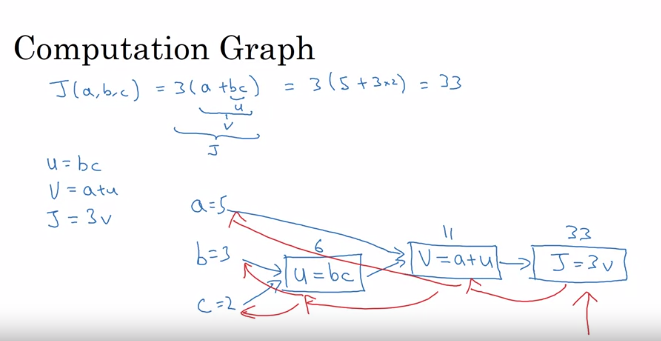 Computation Graph
J(a,b,c) = 3(a+bc) = 3(5+3×2) = 33
u
V
J
u = bc
V = a+u
J = 3v
a=5
b=3
c=2
6
u = bc
11
V = a+u
33
J = 3v